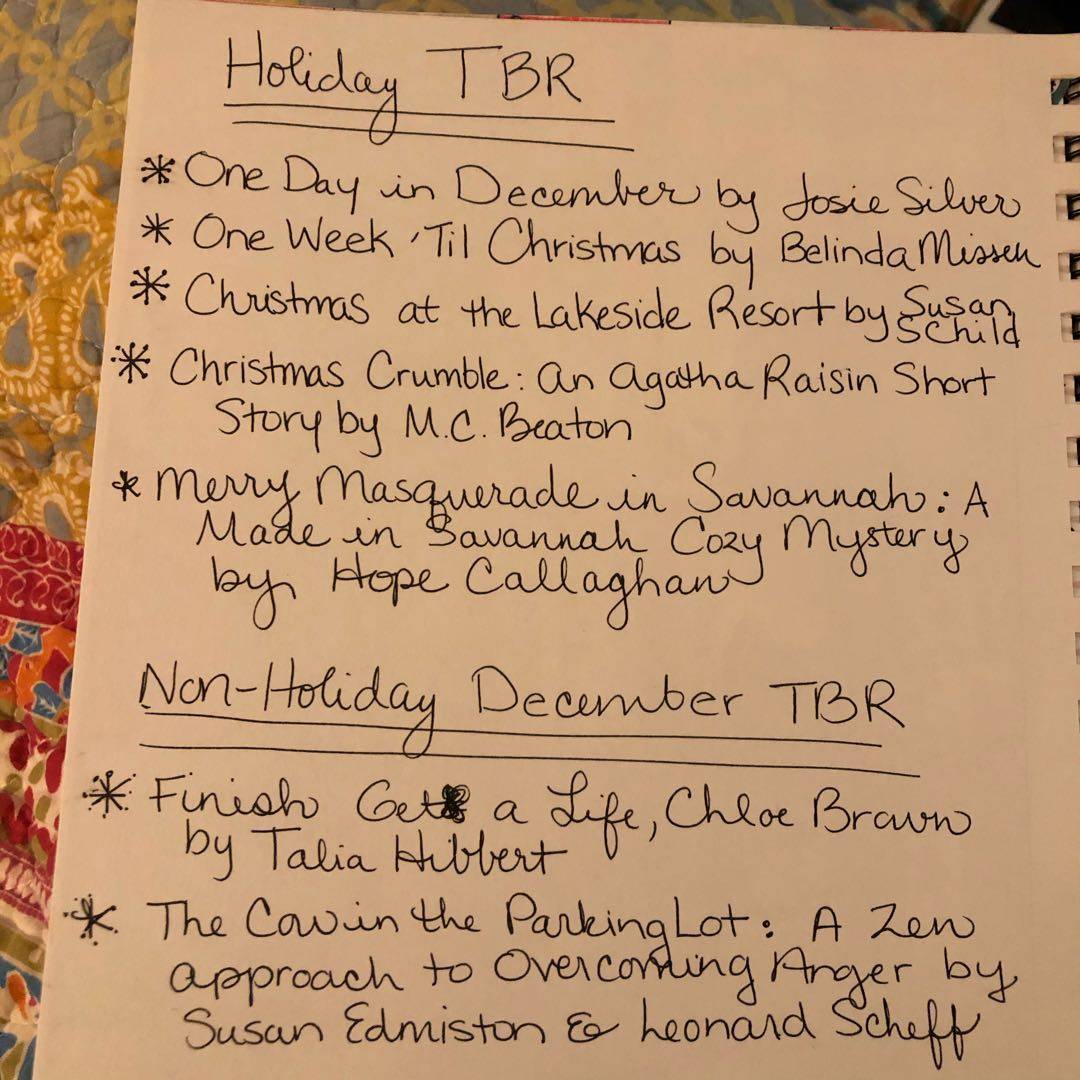 Holiday TBR
* One Day in December by Josie Silver
* One Week 'Til Christmas by Belinda Missen
* Christmas at the Lakeside Resort by Susan
Schild
* Christmas Crumble: an Agatha Raisin Short
Story by M.C. Beaton
* Merry Masquerade in Savannah: A
Made in Savannah Cozy Mystery
by Hope Callaghan
Non-Holiday December TBR
* Finish Get a Life, Chloe Brown
by Talia Hibbert
* The Cow in the Parking Lot: A Zen
approach to Overcoming Anger by
Susan Edmiston & Leonard Scheff